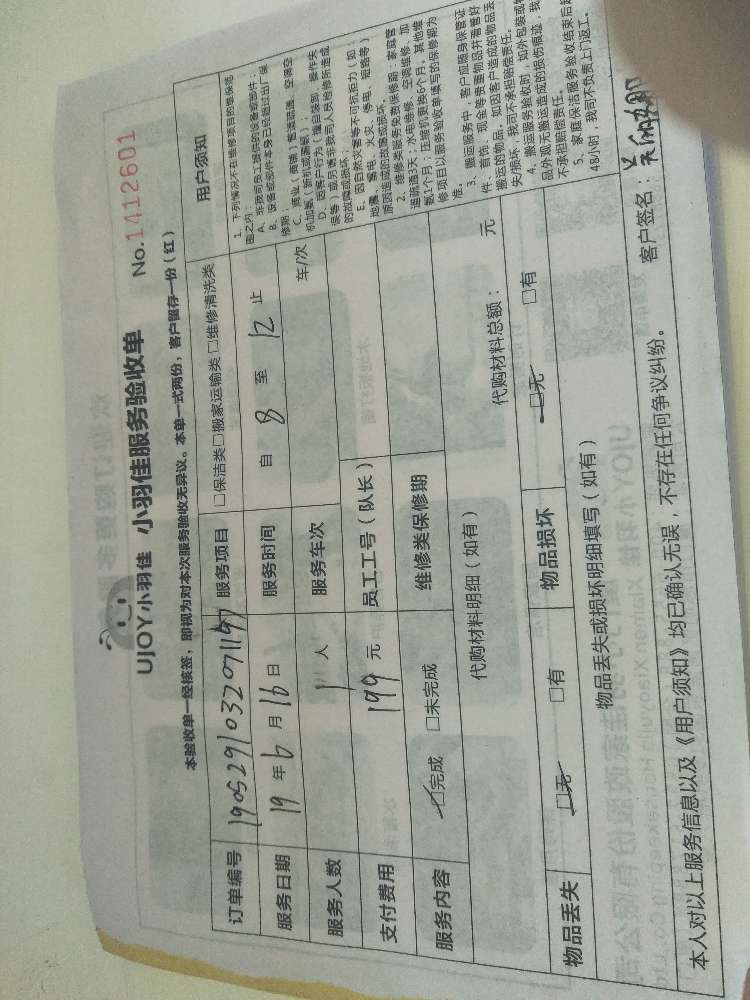 UJOY小羽佳 小羽佳服务验收单 No.1412601
本验收单一经核签，即视为对本次服务验收无异议。本单一式两份，客户留存一份（红）
订单编号 190529103207119 服务项目 □保洁类□搬家运输类□维修清洗类 用户须知
服务日期 19年6月16日 服务时间 自 8 至 12 止
服务人数 1 人 服务车次 车/次
支付费用 199 元 员工工号（队长）
服务内容 □完成 □未完成 维修类保修期
代购材料明细（如有） 代购材料总额： 元
物品丢失 □无 □有 物品损坏 □无 □有
物品丢失或损坏明细填写（如有）
1、下列情况不在维修项目的维保范
围之内：
A、非我司员工提供的设备或部件；
B、设备或部件本身已经超过出厂保
修期；
C、商业（商铺）管道疏通、空调空
机加氨（新机或漏氨）；
D、因客户行为（擅自装卸、操作失
误等）或另请非我司人员检修所造成
的故障或损坏；
E、因自然灾害等不可抗拒力（如：
地震、雷电、火灾、停电、短路等）
原因造成的故障或损坏。
2、维修类服务免费保修期：家庭管
道疏通3天；水电维修、空调维修、加
氨1个月；压缩机更换6个月。其他维
修项目以服务验收单填写的保修期为
准。
3、搬运服务中，客户应随身保管证
件、首饰、现金等贵重物品并看管好
搬运的物品，如因客户造成的物品丢
失/损坏，我司不承担赔偿责任。
4、搬运服务验收时，如外包装或
品外观无搬运造成的损伤痕迹，我
不承担赔偿责任。
5、家庭保洁服务验收结束后
48小时，我司不负责上门返工。
本人对以上服务信息以及《用户须知》均已确认无误，不存在任何争议纠纷。 客户签名：